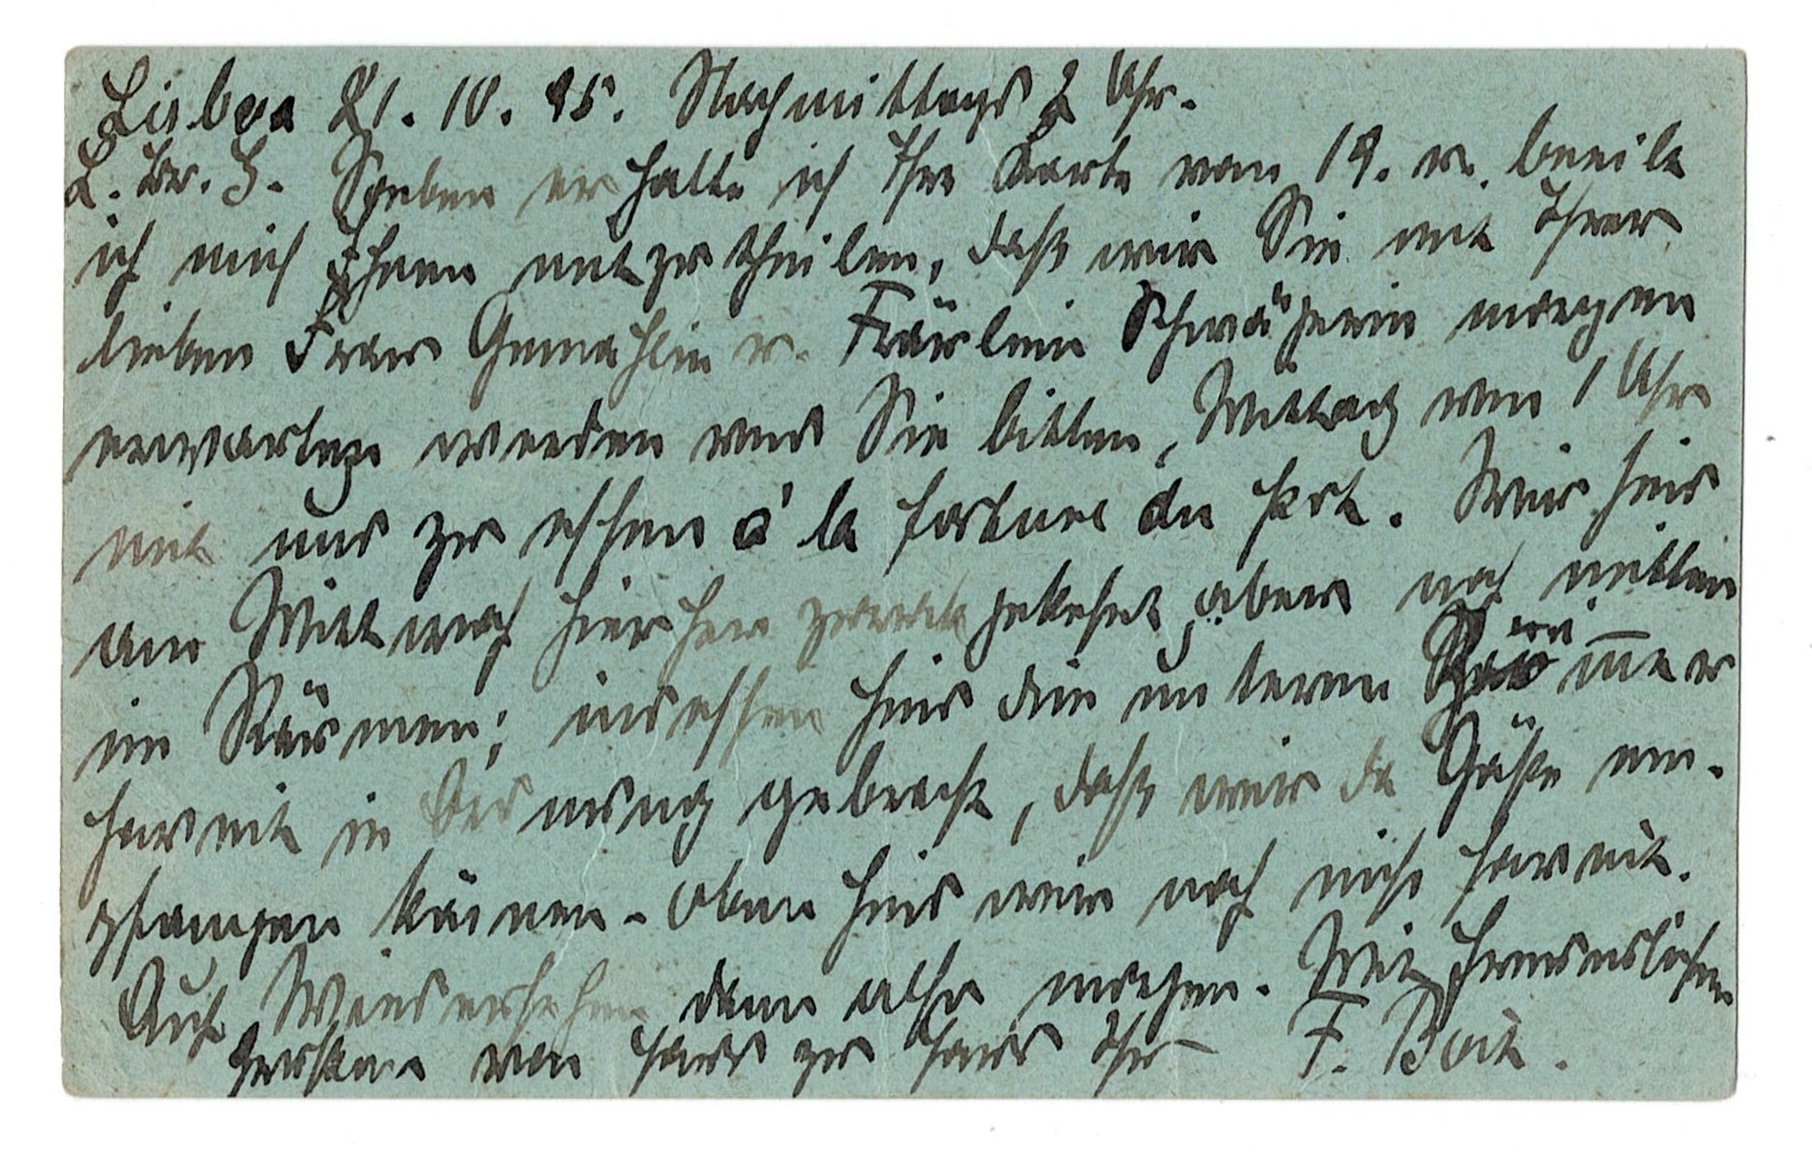 Lisboa 21. 10. 95. Nachmittags 2 Uhr.
L. Hr. G. Soeben erhalte ich Ihre Karte vom 19. u. beeile
ich mich Ihnen mitzutheilen, daß wir Sie mit Ihrer
lieben Frau Gemahlin u. Fräulein Schwägerin morgen
erwarten werden und Sie bitten, Mittag um 1 Uhr
mit uns zu essen à la fortune du pot. Wir sind
am Mittwoch hierher zurückgekehrt, aber noch mitten
im Räumen; indessen sind die unteren Räume
soweit in Ordnung gebracht, daß wir da Gäste em-
pfangen können. Oben sind wir noch nicht soweit.
Auf Wiedersehen denn also morgen. Mit freundlichen
Grüßen von Haus zu Haus Ihr F. Boit.